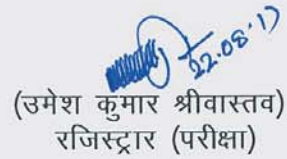 22.08.17
(उमेश कुमार श्रीवास्तव)
रजिस्ट्रार (परीक्षा)